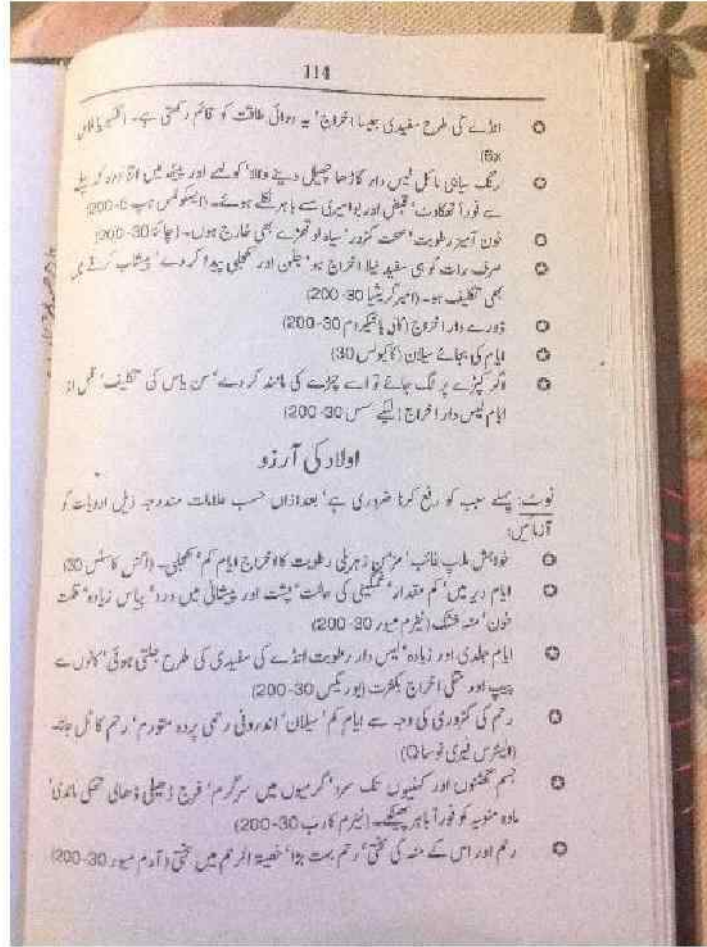 114
انڈے کی طرح سفیدی جیسا اخراج' یہ دوائی طاقت کو قائم رکھتی ہے۔
6x)
رنگ سیاہی مائل لیس دار گاڑھا چھیل دینے والا' کولہے اور پیٹھ میں
سے فوراً تھکاوٹ' قبض اور بواسیری سے باہر نکلے ہوئے۔ (ایسکولس ہپ 6-200)
خون آمیز رطوبت' صحت کمزور' سیاہ لوتھڑے بھی خارج ہوں۔ (چائنا 30-200)
صرف رات کو ہی سفید نیلا اخراج ہو' جلن اور کھجلی پیدا کر دے' پیشاب کرنے میں
بھی تکلیف ہو۔ (امبرگریشیا 30-200)
ڈورے دار اخراج (کالی بائیکروم 30-200)
ایام کی بجائے سیلان (کاکیولس 30)
اگر کپڑے پر لگ جائے تو اسے چمڑے کی مانند کر دے' سن یاس کی تکلیف' قبل از
ایام لیس دار اخراج (لیکے سس 30-200)
اولاد کی آرزو
نوٹ: پہلے سبب کو رفع کرنا ضروری ہے' بعدازاں حسب علامات مندرجہ ذیل ادویات کو
آزمائیں:
خواہش ملاپ غائب' مزمن زہریلی رطوبت کا اخراج ایام کم' کھجلی۔ (اگنس کاسٹس 30)
ایام دیر میں' کم مقدار' غمگینی کی حالت' پشت اور پیشانی میں درد' پیاس زیادہ' قلت
خون' منہ خشک (نیٹرم میور 30-200)
ایام جلدی اور زیادہ' لیس دار رطوبت انڈے کی سفیدی کی طرح جلتی ہوئی' کانوں سے
پیپ اور اخراج بکثرت (بوریکس 30-200)
رحم کی کمزوری کی وجہ سے ایام کم' سیلان' اندرونی رحمی پردہ متورم' رحم کا ٹل جانا۔
(ایلٹرس فیری نوسا Q)
جسم گھٹنوں اور کہنیوں تک سرد' گرمیوں میں سرگرم' فرج ڈھیلی ڈھالی تھکی ماندی'
مادہ منویہ کو فوراً باہر پھینکے۔ (نیٹرم کارب 30-200)
رحم اور اس کے منہ کی سختی' رحم بہت بڑا' خصیۃ الرحم میں سختی (آرم میور 30-200)